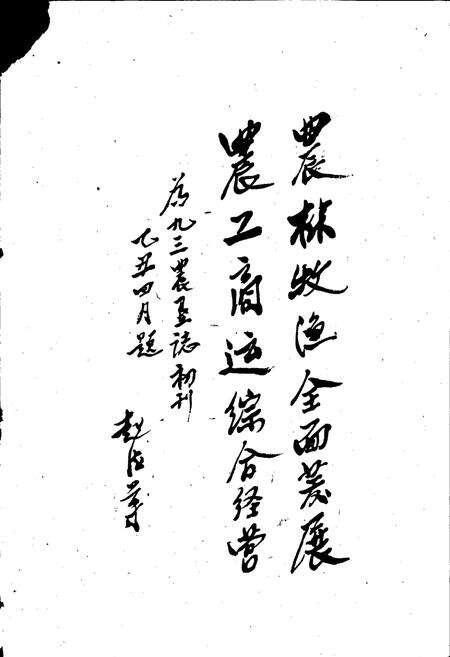 農林牧漁全面发展
農工商运綜合经营
为九三農垦誌初刊
乙丑四月題
赵德尊